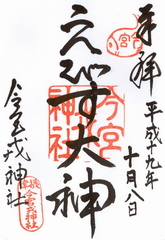 奉拝
平成十九年十月八日
えびす大神
今宮
神社
今宮戎神社
今宮戎神社